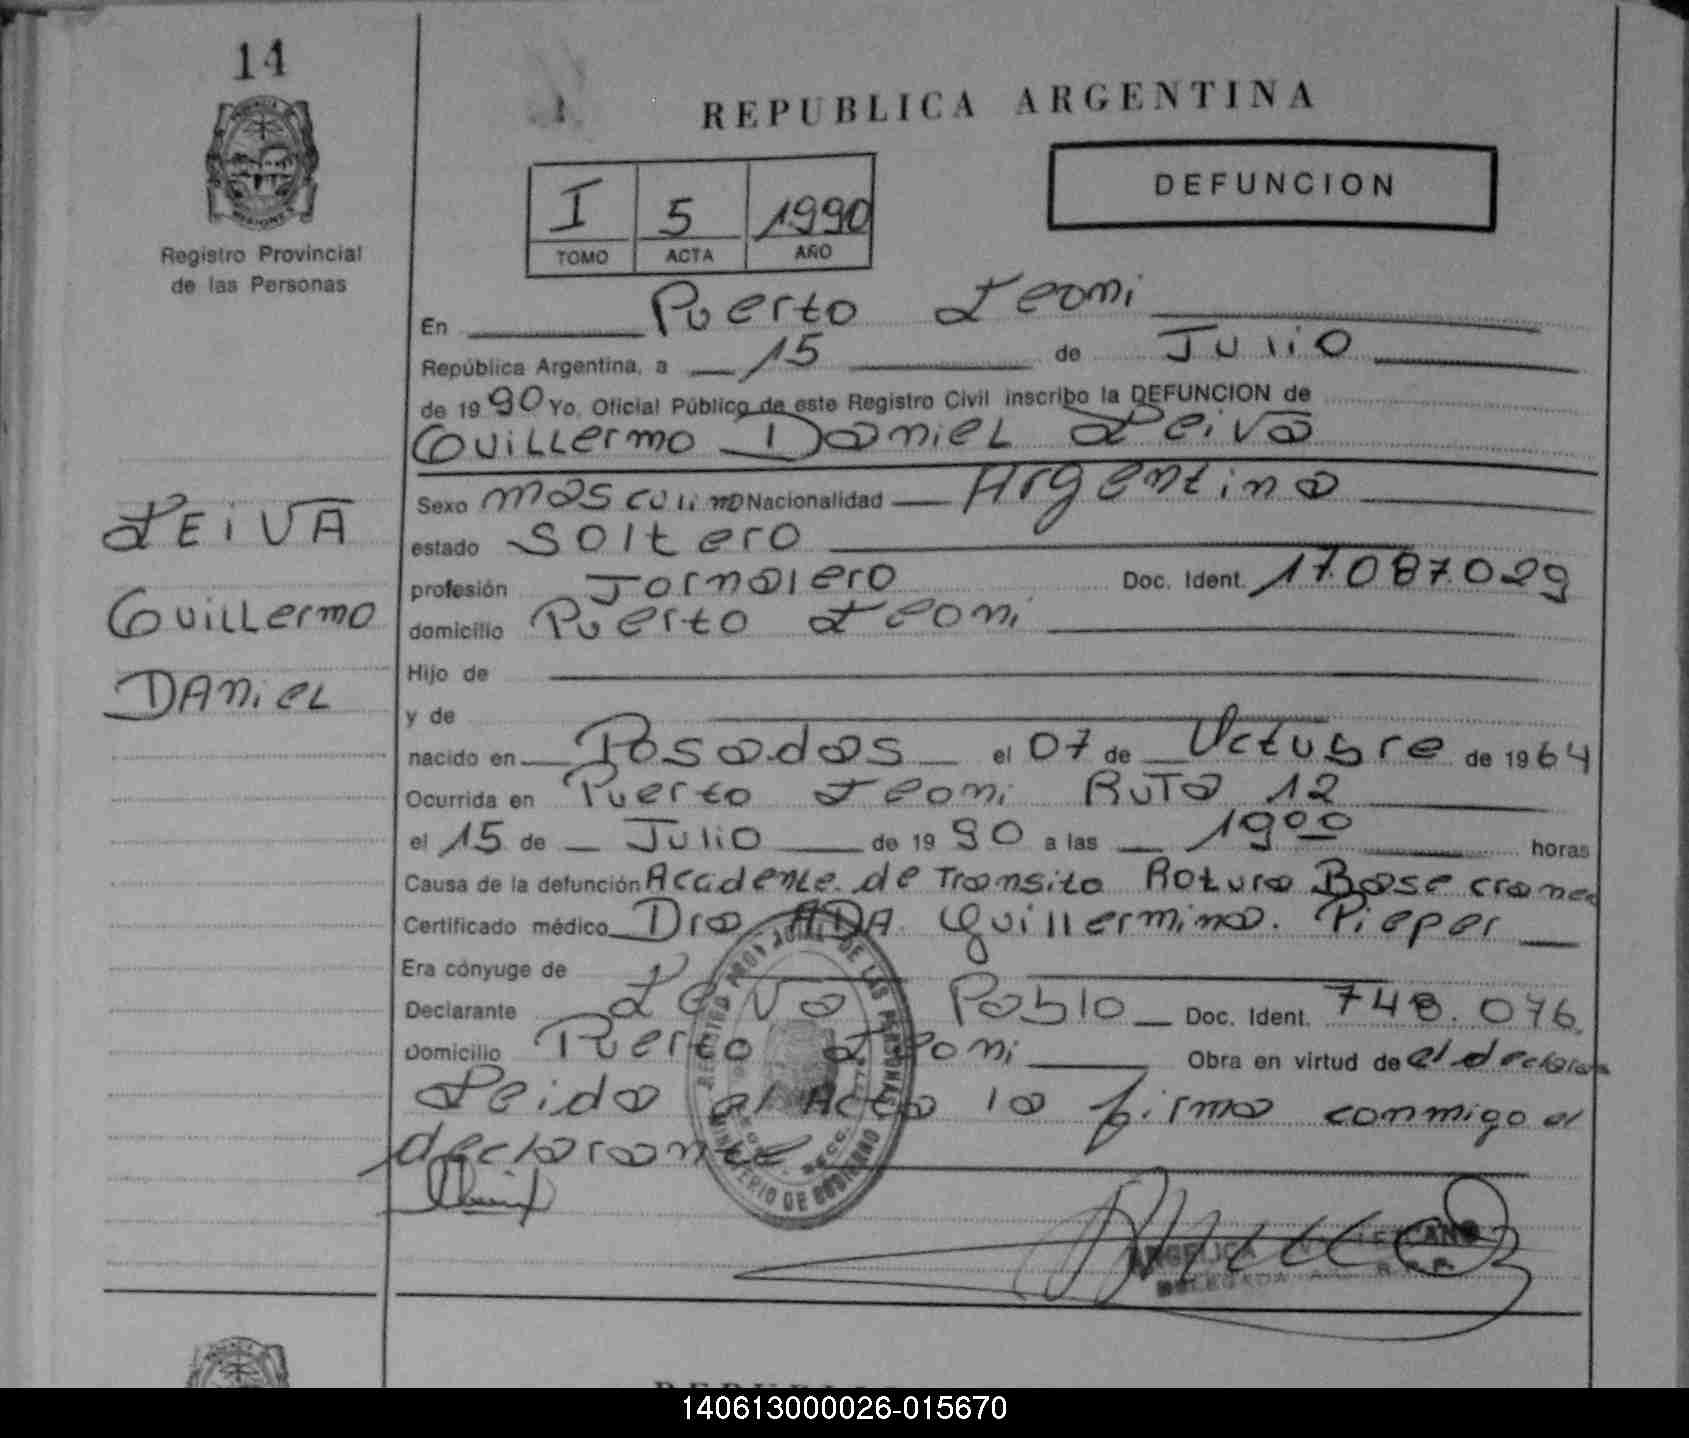 14
Registro Provincial
de las Personas
LEIVA
Guillermo
DANieL
REPUBLICA ARGENTINA
DEFUNCION
I 5 1990
TOMO ACTA AÑO
En Puerto Leoni
República Argentina, a 15 de Julio
de 1990 Yo, Oficial Público de este Registro Civil inscribo la DEFUNCION de
Guillermo Daniel Leiva
Sexo masculino Nacionalidad Argentina
estado Soltero
profesión Jornalero Doc. Ident. 17.087.029
domicilio Puerto Leoni
Hijo de
y de
nacido en Posadas el 07 de Octubre de 1964
Ocurrida en Puerto Leoni Ruta 12
el 15 de Julio de 1990 a las 19 00 horas
Causa de la defunción Accidente de Transito Rotura Base craneo
Certificado médico Dra ADA Guillermina. Pieper
Era cónyuge de
Declarante Leiva Pablo Doc. Ident. 748.076
Domicilio Puerto Leoni Obra en virtud de el declaran
Leida el Acta la firma conmigo el
declarante
REGISTRO PROVINCIAL DE LAS PERSONAS
MINISTERIO DE GOBIERNO
ANGELICA
DELEGADA
140613000026-015670